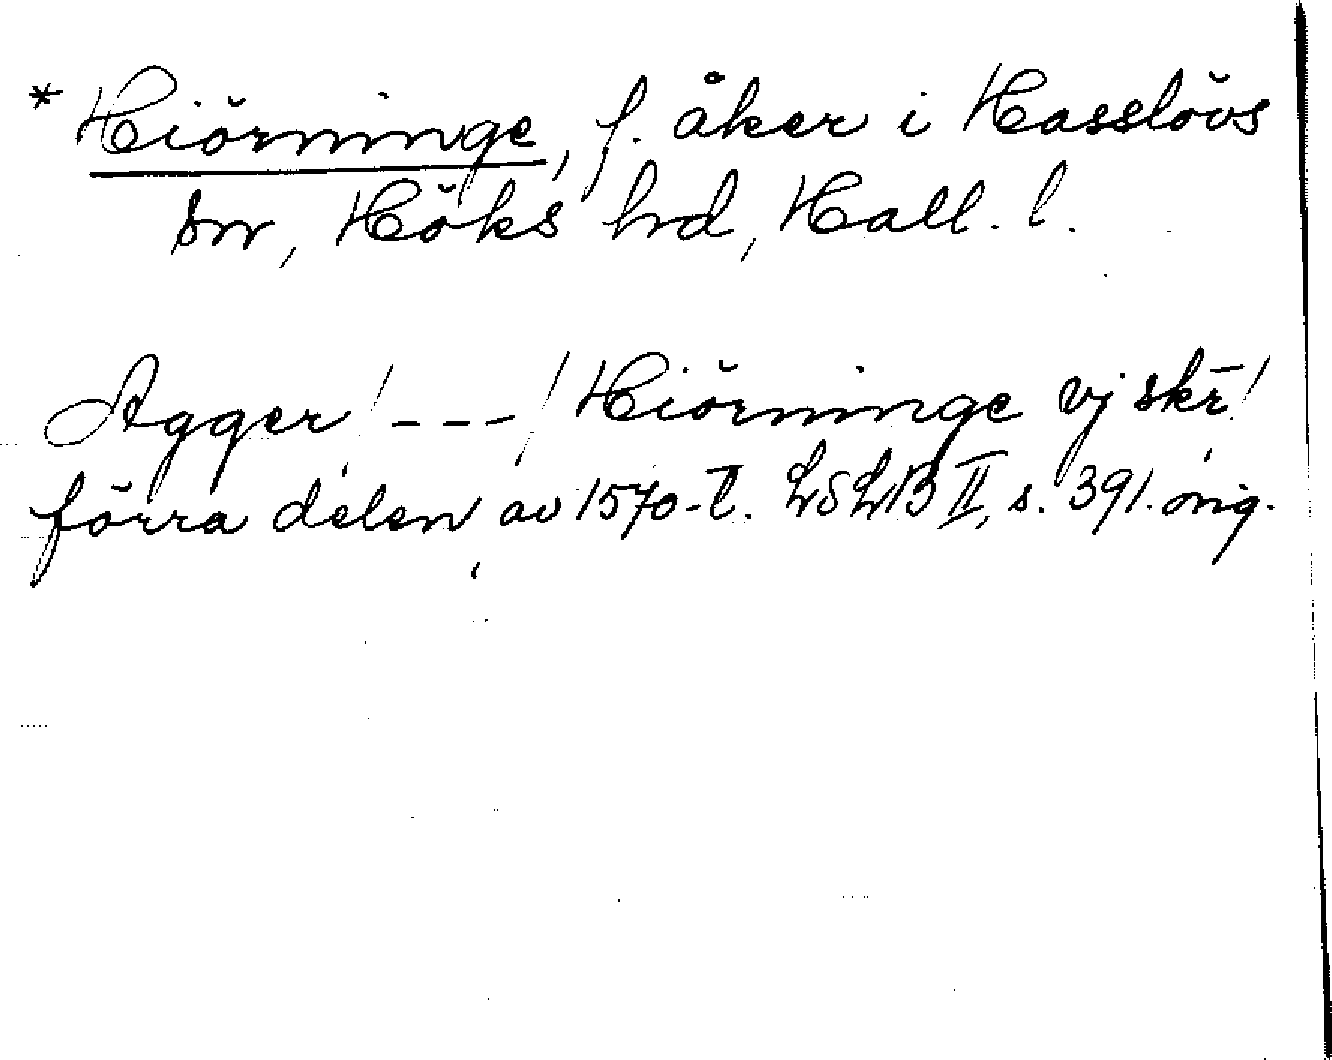 * Hiörninge, f. åker i Hasslövs
sn, Höks hd, Hall. l.
Agger / - - - / Hiörninge vj skr̄ /
förra delen av 1570-t. LSLB II, s. 391. orig.